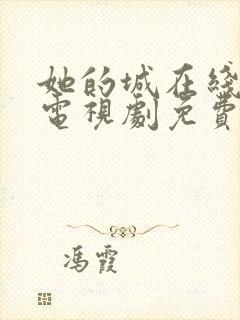 她的城在綫
電視劇免費
馮霞